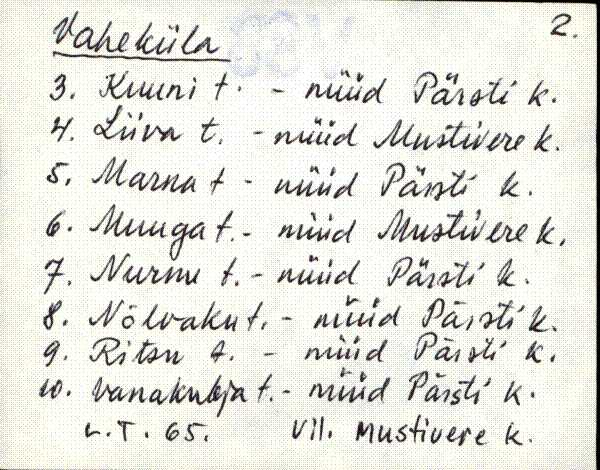 Vaheküla 2.
3. Kuuni t. - nüüd Pärsti k.
4. Liiva t. - nüüd Mustivere k.
5. Marna t - nüüd Pärsti k.
6. Muuga t. - nüüd Mustivere k.
7. Nurme t. - nüüd Pärsti k.
8. Nõlvaku t. - nüüd Pärsti k.
9. Ritsu t. - nüüd Pärsti k.
10. Vanakubja t. - nüüd Pärsti k.
L.T. 65. Vil. Mustivere k.